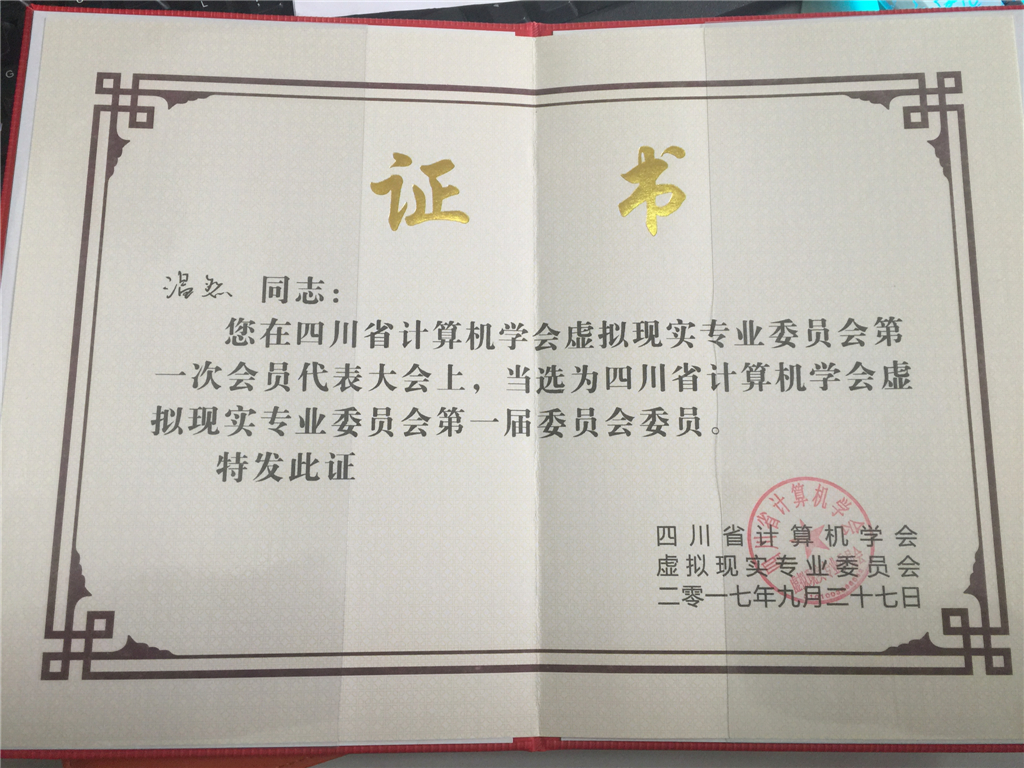 证书
温然 同志:
您在四川省计算机学会虚拟现实专业委员会第
一次会员代表大会上,当选为四川省计算机学会虚
拟现实专业委员会第一届委员会委员。
特发此证
四川省计算机学会
虚拟现实专业委员会
二零一七年九月二十七日
四川省计算机学会